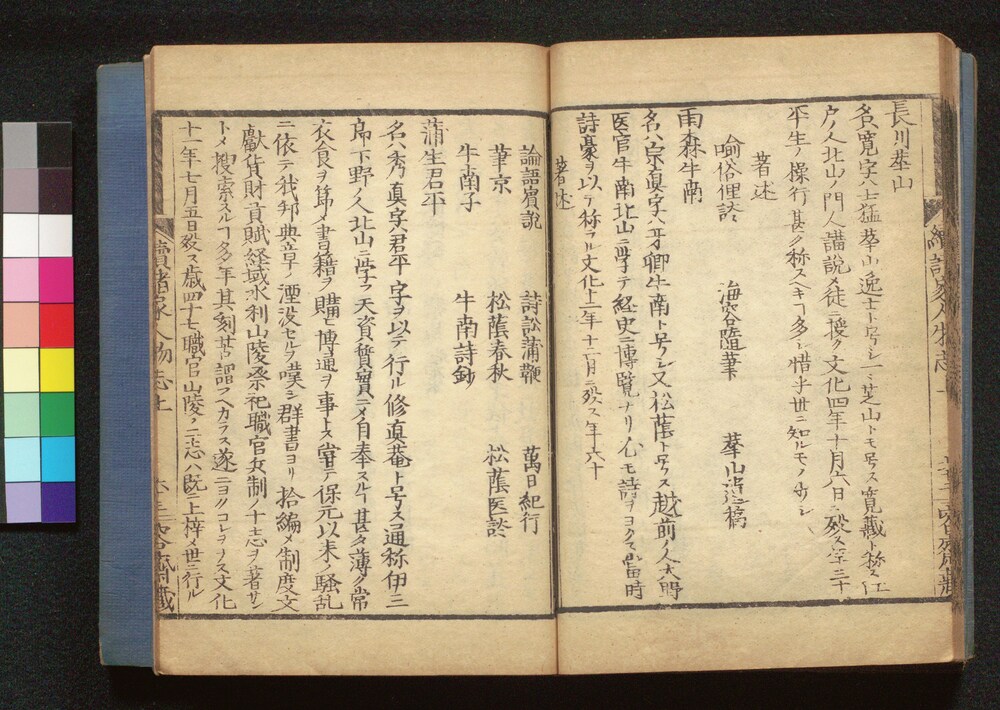 長川菶山
名ハ寛字ハ士猛菶山逸士ト号シ一ニ芝山トモ号ス寛藏ト称ス江
戸ノ人北山ノ門人講説メ徒ニ授ク文化四年十月六日ニ歿ス年三十
平生ノ操行甚タ称スヘキヿ多シ惜乎世ニ知ルモノ少シ
著述
喩俗俚談 海容随筆 菶山遺稿
雨森牛南
名ハ宗真字ハ牙卿牛南ト号シ又松蔭ト号ス越前ノ人大野
医官牛南北山ニ学テ経史ニ博覧ナリ尤モ詩ヲヨクス當時
詩豪ヲ以テ称ラル文化十二年十二月ニ歿ス年六十
著述
論語賓説 詩訟蒲鞭 萬日紀行
筆京 松蔭春秋 松蔭医談
牛南子 牛南詩鈔
蒲生君平
名ハ秀真字君平字ヲ以テ行ル修真菴ト号ス通称伊三
郎下野ノ人北山ニ学フ天資質實ニメ自奉スルヿ甚タ薄ク常
衣食ヲ節メ書籍ヲ購ヒ博通ヲ事トス嘗テ保元以来ノ騒乱
ニ依テ我邦典章ノ湮没セルヲ嘆シ群書ヨリ拾編メ制度文
獻貨財貢賦経域水利山陵祭祀職官兵制ノ十志ヲ著サン
トメ捜索スルヿ多年其刻苦謂フヘカラス遂ニヨクコレヲナス文化
十一年七月五日歿ス歳四十七職官山陵ノ二志ハ既ニ上梓メ世ニ行ル
續諸家人物志上